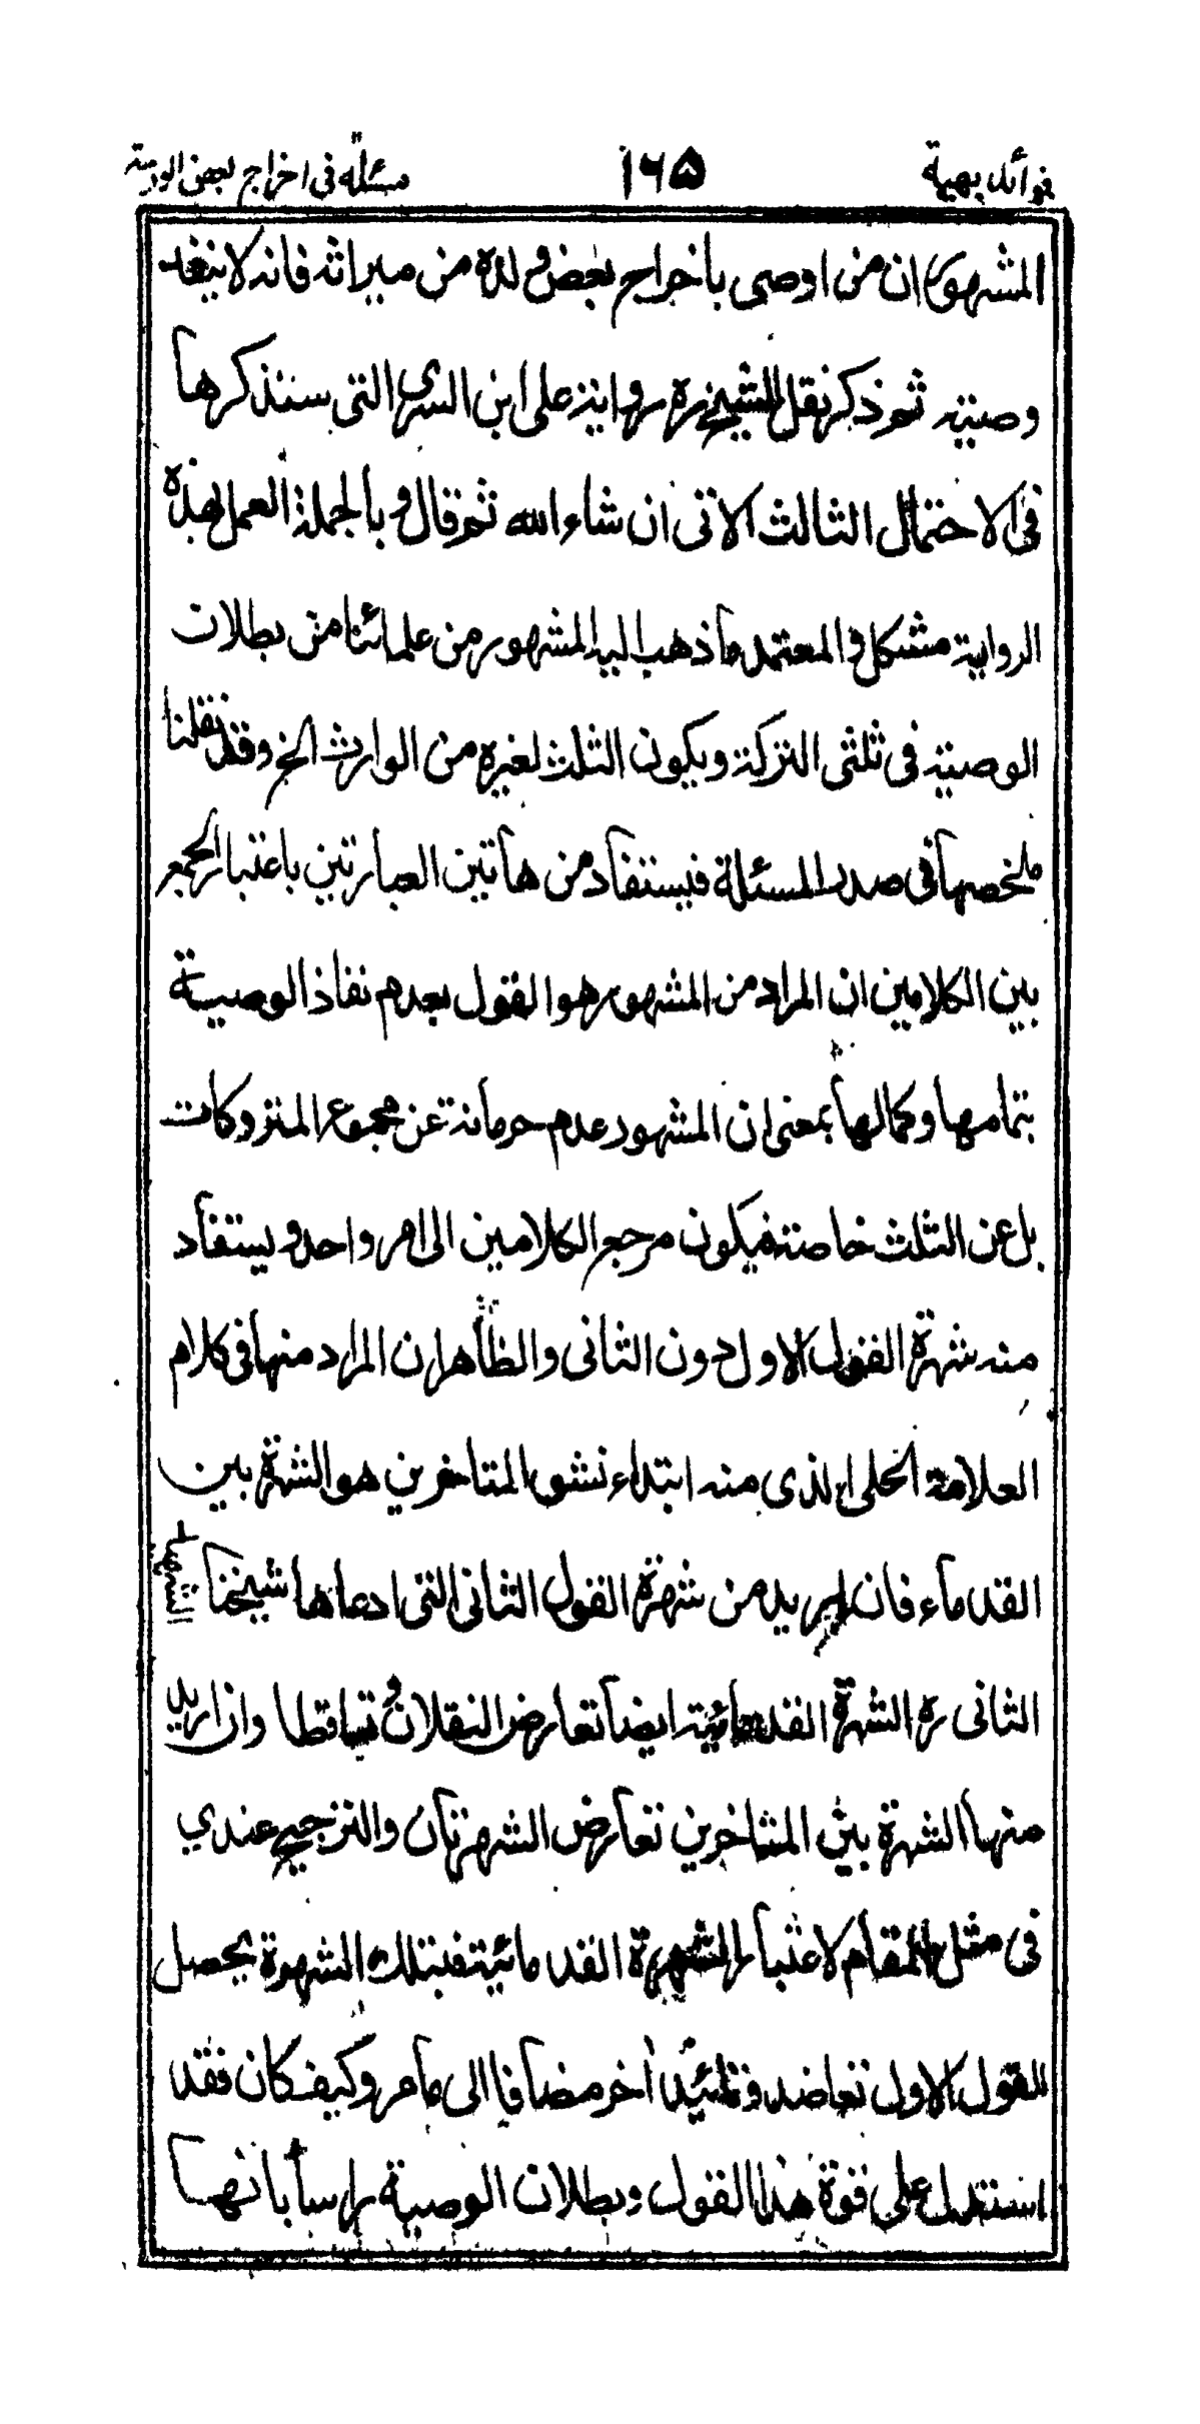 فوائد بهية ١٦٥ مسئلة فى اخراج بعض الورثة
المشهور ان من اوصى باخراج بعض ولده من ميراثه فانه لا ينفذ
وصيته ثم ذكر نقل الشيخ ره رواية على ابن السرى التى سنذكرها
فى الاحتمال الثالث الاتى ان شاء الله ثم قال و بالجملة العمل بهذه
الرواية مشكل و المعتمد ما ذهب اليه المشهور من علمائنا من بطلان
الوصية فى ثلثى التركة ويكون الثلث لغيره من الوارث الخ وقد نقلنا
ملخصها فى صدر المسئلة فيستفاد من هاتين العبارتين باعتبار الجمع
بين الكلامين ان المراد من المشهور هو القول بعدم نفاذ الوصية
بتمامها وكمالها بمعنى ان المشهور عدم حرمانه عن مجموع المتروكات
بل عن الثلث خاصة فيكون مرجع الكلامين الى امر واحد و يستفاد
منه شهرة القول الاول دون الثانى والظاهر ان المراد منها فى كلام
العلامة الحلى الذى منه ابتداء نشو المتاخرين هو الشهرة بين
القدماء فان اريد من شهرة القول الثانى التى ادعاها شيخنا الشهيد
الثانى ره الشهرة القدمائية ايضا تعارض النقلان و تساقطا وان اريد
منها الشهرة بين المتاخرين تعارض الشهرتان والترجيح عندي
فى مثل المقام لاعتبار الشهرة القدمائية فبتلك الشهرة يحصل
للقول الاول تعاضد وتائيد اخر مضافا الى ما مر وكيف كان فقد
استدل على قوة هذا القول وبطلان الوصية راسا بانها